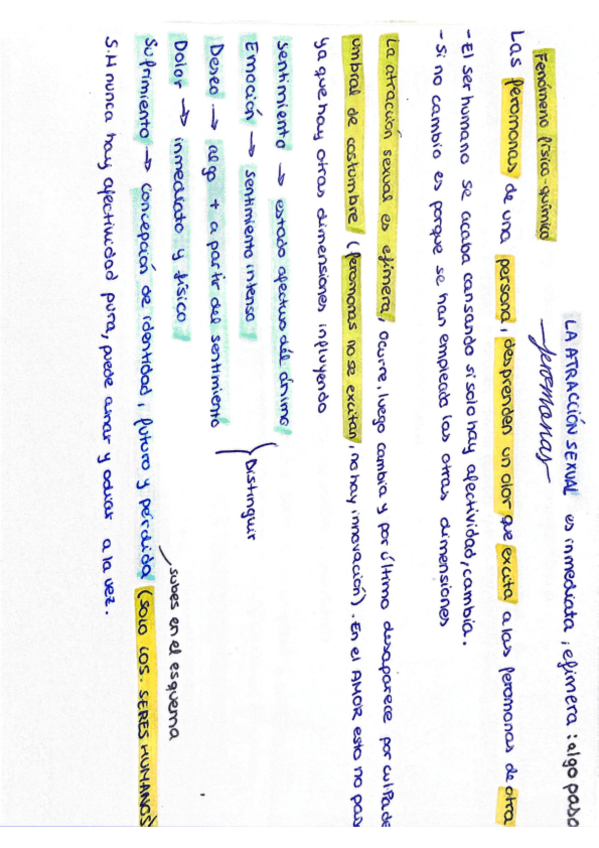 LA ATRACCIÓN SEXUAL es inmediata, efímera: algo pasa
Fenómeno físico químico feromonas
Las feromonas de una persona, desprenden un olor que excita a las feromonas de otra
- El ser humano se acaba cansando si solo hay afectividad, cambia.
- Si no cambia es porque se han empleado las otras dimensiones
La atracción sexual es efímera, ocurre, luego cambia y por último desaparece por culpa de
umbral de costumbre (feromonas no se excitan, no hay innovación). En el AMOR esto no pas
ya que hay otras dimensiones influyendo
Sentimiento → estado afectivo del ánimo
Emoción → sentimiento intenso
Distinguir
Deseo → algo + a partir del sentimiento
Dolor → inmediato y físico
subes en el esquema
Sufrimiento → concepción de identidad, futuro y pérdida (SOLO LOS. SERES HUMANOS)
S.H nunca hay afectividad pura, puede amar y odiar a la vez.